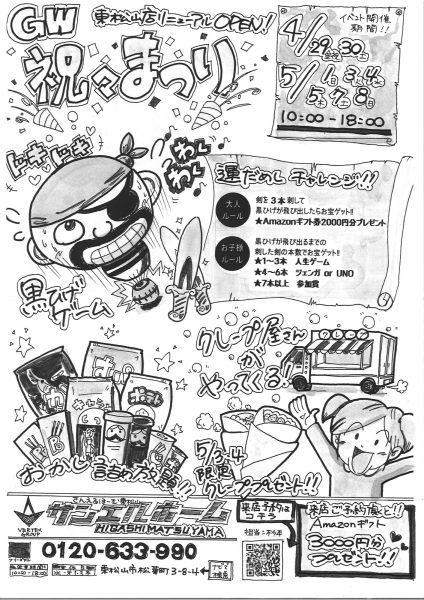 GW
東松山店リニューアルOPEN!
祝々まつり
イベント開催期間!!
4/29金祝30土
5/1日3火4水
5木7土8日
10:00-18:00
ドキドキ
わくわく
運だめしチャレンジ!!
大人ルール
剣を3本刺して
黒ひげが飛び出したらお宝ゲット!!
★Amazonギフト券2000円分プレゼント
お子様ルール
黒ひげが飛び出るまでの
刺した剣の本数でお宝ゲット!!
★1~3本 人生ゲーム
★4~6本 ツェンガ or UNO
★7本以上 参加賞
黒ひげゲーム
クレープ屋さんがやってくる!
おかし詰め放題!!
5/3.4限定
クレーププレゼント!!
VERTEX GROUP
さんえるほーむ東松山
サンエルホーム
HIGASHIMATSUYAMA
0120-633-990
10:00-18:00
東松山市松葉町3-8-4
ナビで検索
来店予約はコチラ
来店ご予約頂くと!!
Amazonギフト
3000円分
プレゼント!!